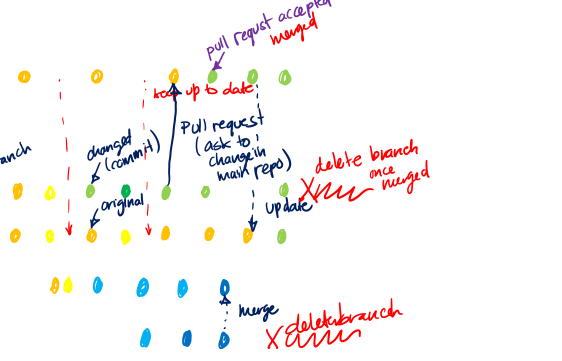 pull requst accepted
merged
keep up to date
anch
changed
(commit)
Pull request
(ask to
change in
main repo)
delete branch
once
merged
original
update
merge
delete branch